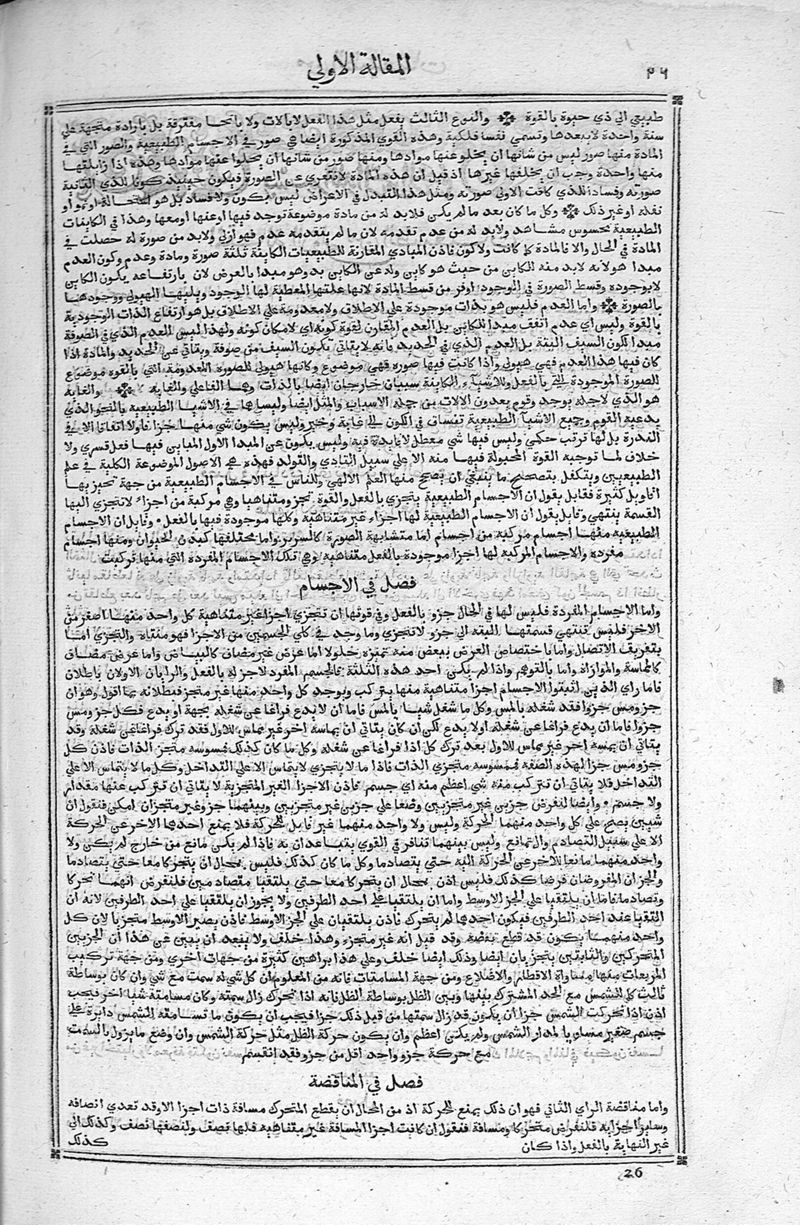 المقالة الاولي
٢٦
طبيعي الي ذي حيوة بالقوة ※ والنوع الثالث يفعل مثل هذا الفعل لا بالات ولا بانحا مفترقة بل بارادة متجهة علي
سنة واحدة لا يعدها وتسمي نفسا فلكية وهذه القوي المذكورة ايضا في صور في الاجسام الطبيعية والصور التي في
المادة منها صور ليس من شانها ان يخلو عنها موادها ومنها صور من شانها ان يخلوا عنها موادها وهذه اذا زايلتها
منها واحدة وجب ان يخلفها غيرها اذ قيل ان هذه المادة لا تتعري عن الصورة فيكون حينيذ كونا للذي الثانية
صورته وفسادا للذي كانت الاولي صورته ومثل هذا التبدل في الاعراض ليس بكون ولا فساد بل هو استحالة او نمو او
نقلة او غير ذلك ※ وكل ما كان بعد ما لم يكن فلابد له من مادة موضوعة توجد فيها او عنها او معها وهذا في الكاينات
الطبيعية محسوس مشاهد ولابد له من عدم تقدمه لان ما لم يتقدمه عدم فهو ازلي ولابد من صورة له حصلت في
المادة في الحال والا فالمادة كما كانت ولا كون فاذن المبادي المقارنة للطبيعيات الكاينة ثلثة صورة ومادة وعدم وكون العدم
مبدا هو لانه لابد منه للكاين من حيث هو كاين وله عن الكاين بد وهو مبدا بالعرض لان بارتفاعه يكون الكاين
لا بوجوده وقسط الصورة في الوجود اوفر من قسط المادة لانها علتها المعطية لها الوجود ويليها الهيولي ووجودها
بالصورة ※ واما العدم فليس هو بذات موجودة علي الاطلاق ولا معدومة علي الاطلاق بل هو ارتفاع الذات الوجودية
بالقوة وليس اي عدم اتفق مبدا للكاين بل العدم المقارن لقوة كونه اي لامكان كونه ولهذا ليس العدم الذي في الصوفة
مبدا لكون السيف البتة بل العدم الذي في الحديد فانه لا يتاتي تكون السيف من صوفة ويتاتي عن الحديد والمادة اذا
كان فيها هذا العدم فهي هيولي واذا كانت فيها صورة فهي موضوع وكانها هيولي للصورة المعدومة التي بالقوة موضوع
للصورة الموجودة التي بالفعل وللاشيا الكاينة سببان خارجان ايضا بالذات وهما الفاعل والغاية ※ والغاية
هو الذي لاجله يوجد وقوم يعدون الالات من جملة الاسباب والمثل ايضا وليسا هما في الاشيا الطبيعية بالنحو الذي
يدعيه القوم وجميع الاشيا الطبيعية تنساق في الكون الي غاية وخير وليس يكون شي منها جزافا ولا اتفاقا الا في
الندرة بل لها ترتب حكمي وليس فيها شي معطل لا فايدة فيه وليس يكون عن المبدا الاول المباين فيها فعل قسري ولا
خلاف لما توجبه القوة المجبولة فيها منه الا علي سبيل التادي والتولد فهذه هي الاصول الموضوعة الكلية في علم
الطبيعيين ويتكفل بتصحيح ما ينبغي ان يصح منها العلم الالهي وللناس في الاجسام الطبيعية من جهة تجزيها
اقاويل كثيرة فقايل يقول ان الاجسام الطبيعية يتجزي بالفعل والقوة تجزو متناهيا وهي مركبة من اجزاء لا تتجزي اليها
القسمة ينتهي وقايل يقول ان الاجسام الطبيعية لها اجزاء غير متناهية وكلها موجودة فيها بالفعل وقايل ان الاجسام
الطبيعية منها اجسام مركبة من اجسام اما متشابهة الصورة كالسرير واما مختلفتها كبدن الحيوان ومنها اجسام
مفردة والاجسام المركبة لها اجزا موجودة بالفعل متناهية وهي تلك الاجسام المفردة التي منها تركبت
فصل في الاجسام
واما الاجسام المفردة فليس لها في الحال جزو بالفعل وفي قوتها ان تتجزي اجزا غير متناهية كل واحد منها اصغر من
الاخر فليس تنتهي قسمتها البتة الي جزو لا يتجزي وما وجد في كلي الجسمين من الاجزا فهو متناه والتجزي اما
بتفريق الاتصال واما باختصاص العرض ببعض منه تميزه حلولا اما عرض غير مضاف كالبياض واما عرض مضاف
كالمماسة والموازاة واما بالتوهم واذا لم يكن احد هذه الثلثة فالجسم المفرد لا جزو له بالفعل والرايان الاولان باطلان
فاما راي الذين اثبتوا الاجسام اجزا متناهية منها يتركب ويوجد كل واحد منها غير متجز فبطلانه بما اقول وهو ان
جزو مس جزوا فقد شغله بالمس وكل ما شغل شيا بالمس فاما ان لا يدع فراغا عن شغله بجهة او يدع فكل جزو مس
جزوا فاما ان يدع فراغا عن شغله او لا يدع لكن ان كان يتاتي ان يماسه اخر غير مماس للاول فقد ترك فراغا عن شغله وقد
يتاتي ان يمسه اخر غير مماس للاول بعد ترك كل اذا فراغا عن شغله وكل ما كان كذلك فمسوسه متجز الذات فاذن كل
جزو مس جزا لهذه الصفة فممسوسه متجزي الذات فاذا ما لا يتجزي لا يتماس الا علي التداخل وكل ما لا يتماس الا علي
التداخل فلا يتاتي ان تتركب منه شي اعظم منه اي جسم فاذن الاجزا الغير المتجزية لا يتاتي ان تتركب عنها مقدار
ولا جسم وايضا لنفرض جزين غير متجزيين وضعا علي جزين غير متجزيين وبينهما جزو غير متجز ان امكن فنقول ان
شيين يصح علي كل واحد منهما الحركة وليس ولا واحد منهما غير قابل للحركة فلا يمنع احدهما الاخر عن الحركة
الا علي سبيل التصادم والتمانع وليس بينهما تنافر في القوي يتباعدان به فاذا لم يكن مانع من خارج لم يكن ولا
واحد منهما مانعا للاخر عن الحركة اليه حتي يتصادما وكل ما كان كذلك فليس بمحال ان يتحركا معا حتي يتصادما
والجزان المفروضان فرضا كذلك فليس اذن بمحال ان يتحركا معا حتي يلتقيا متصادمين فلنفرض انهما تحركا
وتصادما فاما ان يلتقيا علي الجزو الاوسط واما ان يلتقيا علي احد الطرفين ولا يجوز ان يلتقيا علي احد الطرفين لانه ان
التقيا عند احد الطرفين فيكون احدهما لم يتحرك فاذن يلتقيان علي الجزو الاوسط فاذن يصير الاوسط متجزيا لان كل
واحد منهما يكون قد قطع بعضه وقد قيل انه غير متجزء وهذا خلف ولا يبعد ان يبين عن هذا ان الجزين
المتحركين والثابتين يتجزيان ايضا وذلك ايضا خلف وعلي هذا براهين كثيرة من جهات اخري ومن جهة تركيب
المربعات منها ومساواة الاقطار والاضلاع ومن جهة المسامتات فانه من المعلوم ان كل شي له سمت مع شي وان كان بوساطة
ثالث كالشمس مع الحد المشترك بينها وبين الظل بوساطة الظل فانه اذا تحرك زال سمته وكان مسامته شيا اخر فيجب
اذن اذا تحركت الشمس جزا ان يكون قد زال سمتها من قبل ذلك جزا فيجب ان يكون ما تسامته الشمس دايرة علي
جسم صغير مساويا لمدار الشمس ولم يكن اعظم وان يكون حركة الظل مثل حركة الشمس وان وضع ما يزول بالسمت
مع حركة جزو واحد اقل من جزو فقد انقسم
فصل في المناقضة
واما مناقضة الراي الثاني فهو ان ذلك يمنع للحركة اذ من المحال ان يقطع المتحرك مسافة ذات اجزا الا وقد تعدي انصافه
وساير اجزايه فلنفرض متحركا ومسافة فنقول ان كانت اجزا المسافة غير متناهية فلها نصف ولنصفها نصف وكذلك الي
غير النهاية بالفعل واذا كان
كذلك
26